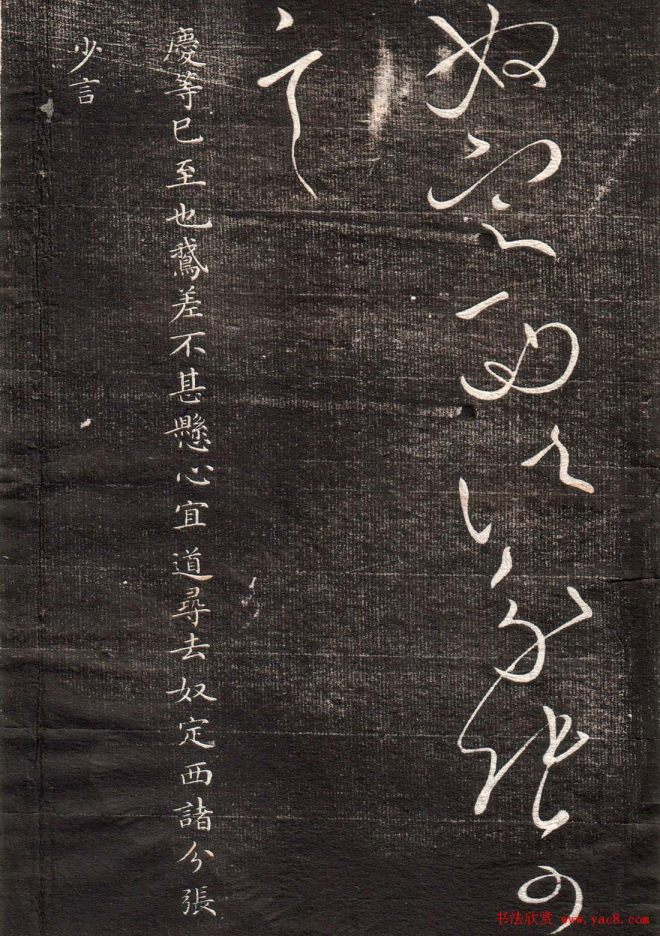 奴定西諸分張少
言
慶等已至也鵞差不甚懸心宜道尋去奴定西諸分張
少言
书法欣赏 www.yac8.com